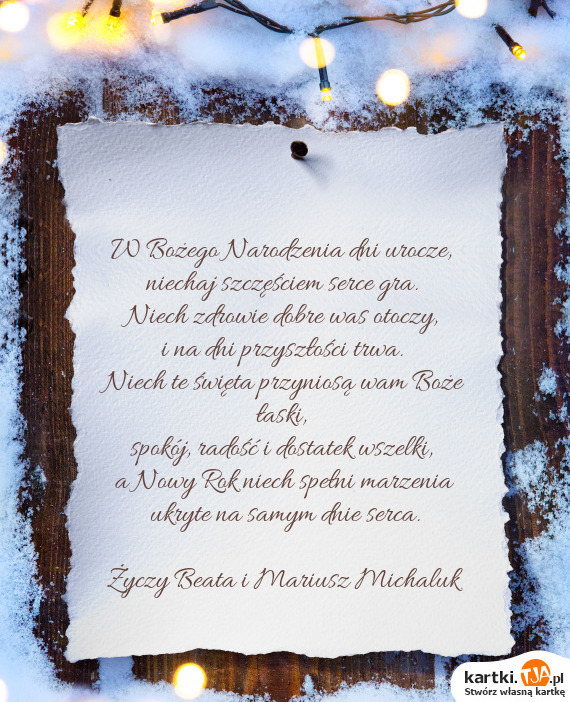 W Bożego Narodzenia dni urocze,
niechaj szczęściem serce gra.
Niech zdrowie dobre was otoczy,
i na dni przyszłości trwa.
Niech te święta przyniosą wam Boże
łaski,
spokój, radość i dostatek wszelki,
a Nowy Rok niech spełni marzenia
ukryte na samym dnie serca.
Życzy Beata i Mariusz Michaluk
kartki.TJA.pl
Stwórz własną kartkę